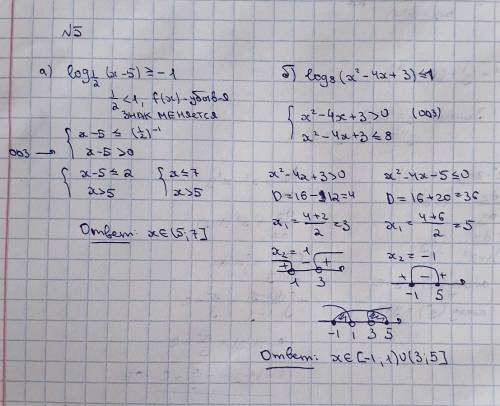 №5
а) log½ (x-5) ≥ -1
½ <1, f(x)-убыв-я
ЗНАК МЕНЯЕТСЯ
ОО3 → { x-5 ≤ (½)⁻¹
x-5 >0
{ x-5 ≤ 2 { x ≤ 7
x>5 x>5
Ответ: x∈(5;7]
б) log₈(x²-4x+3) ≤ 1
{ x²-4x+3>0 (ОО3)
x²-4x+3 ≤ 8
x²-4x+3>0
D=16-12=4
x₁ = (4+2)/2 = 3
x₂ = 1
+ - +
1 3
x²-4x-5 ≤ 0
D = 16+20=36
x₁ = (4+6)/2 = 5
x₂ = -1
+ - +
-1 5
-1 1 3 5
Ответ: x∈[-1,1)∪(3;5]